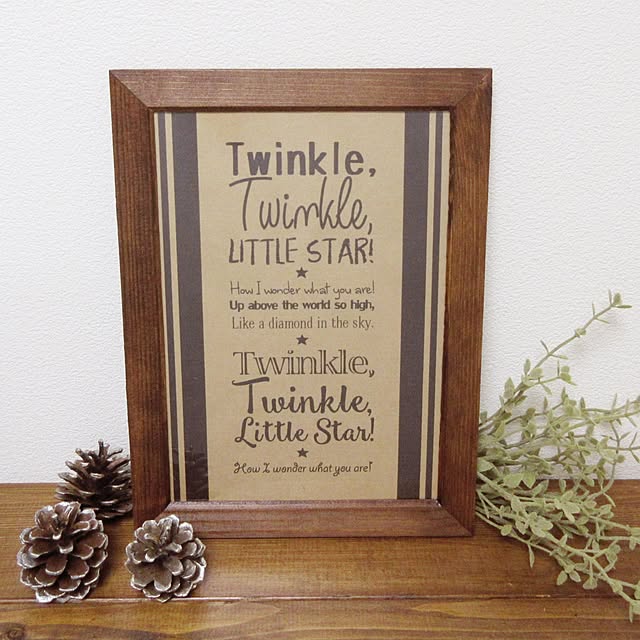 Twinkle,
Twinkle,
LITTLE STAR!
How I wonder what you are!
Up above the world so high,
Like a diamond in the sky.
Twinkle,
Twinkle,
Little Star!
How I wonder what you are!